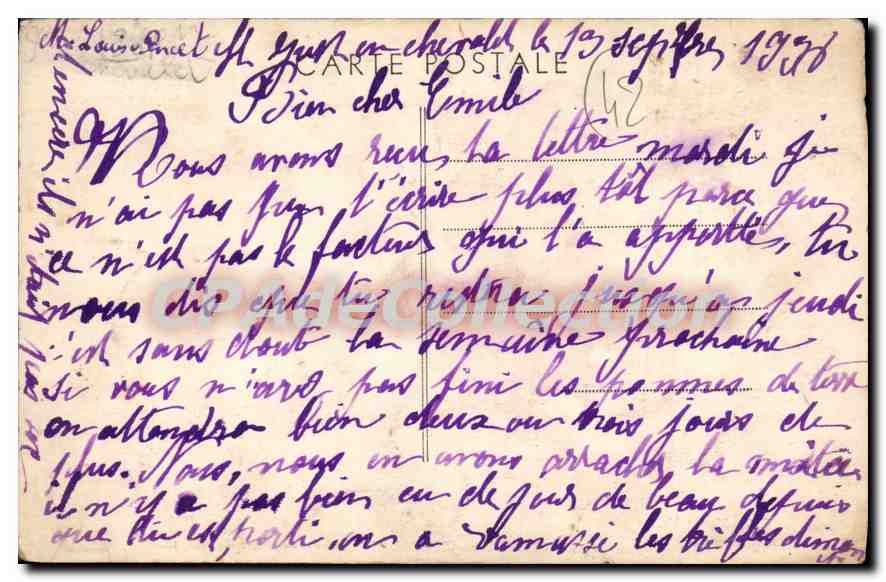 St Just en chevalet le 13 septbre 1936
CARTE POSTALE
42
Bien cher Emile
Nous avons reçu ta lettre mardi je
n'ai pas pu t'écrire plus tôt parce que
ce n'est pas le facteur qui l'a apportée, tu
nous dis que tu restera jusqu'à jeudi
c'est sans dout la semaine prochaine
si vous n'avé pas fini les pommes de terre
on attendra bien deux ou trois jours de
plus. Nous, nous en avons arraché la moitié
il n'y a pas bien eu de jour de beau depuis
que tu es parti, on a ramassé les
CPAdeCollection